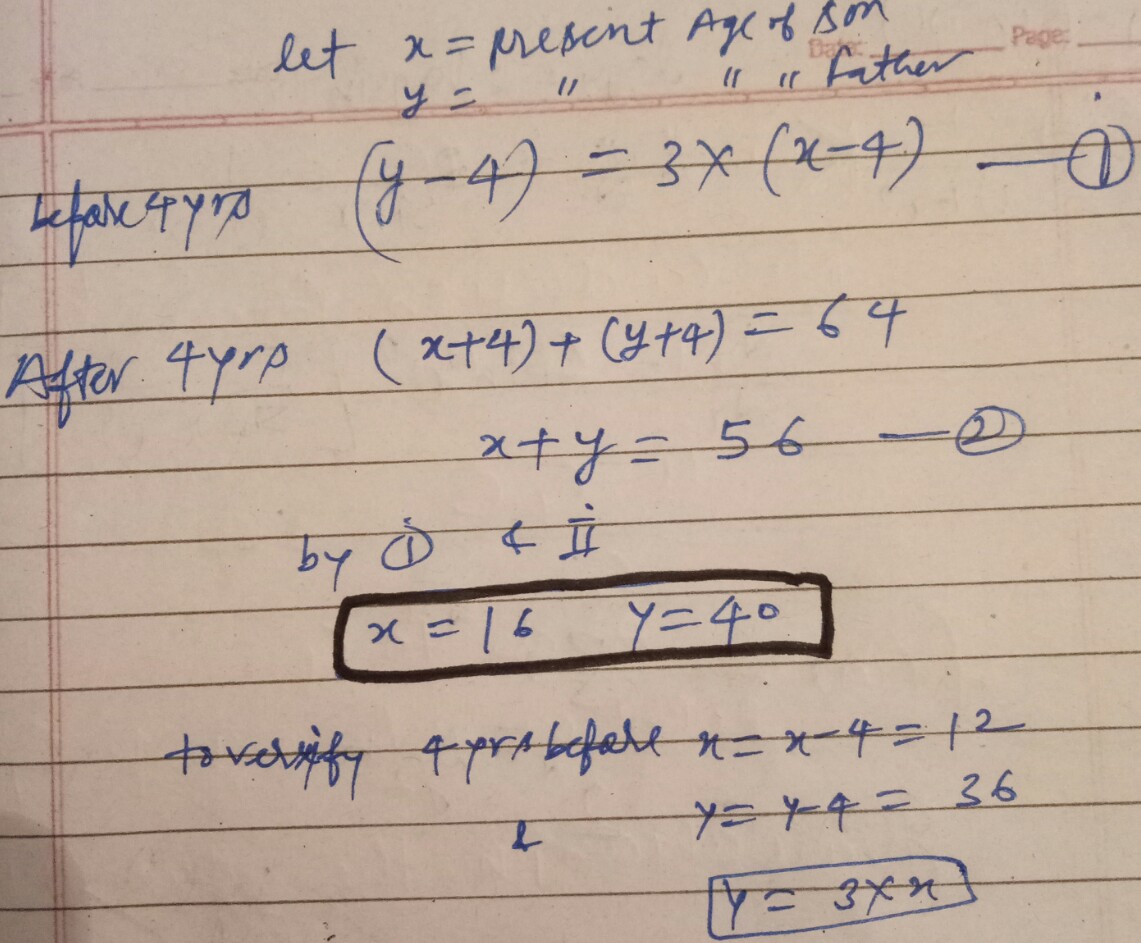 let x = present Age of son
Date: Page:
y = " " " father
before 4 yrs (y-4) = 3×(x-4) — ①
After 4yrs (x+4)+(y+4) = 64
x+y = 56 — ②
by ① & II
x = 16 y=40
to verify 4 yrs before x = x-4 = 12
y = y-4 = 36
&
y = 3×x